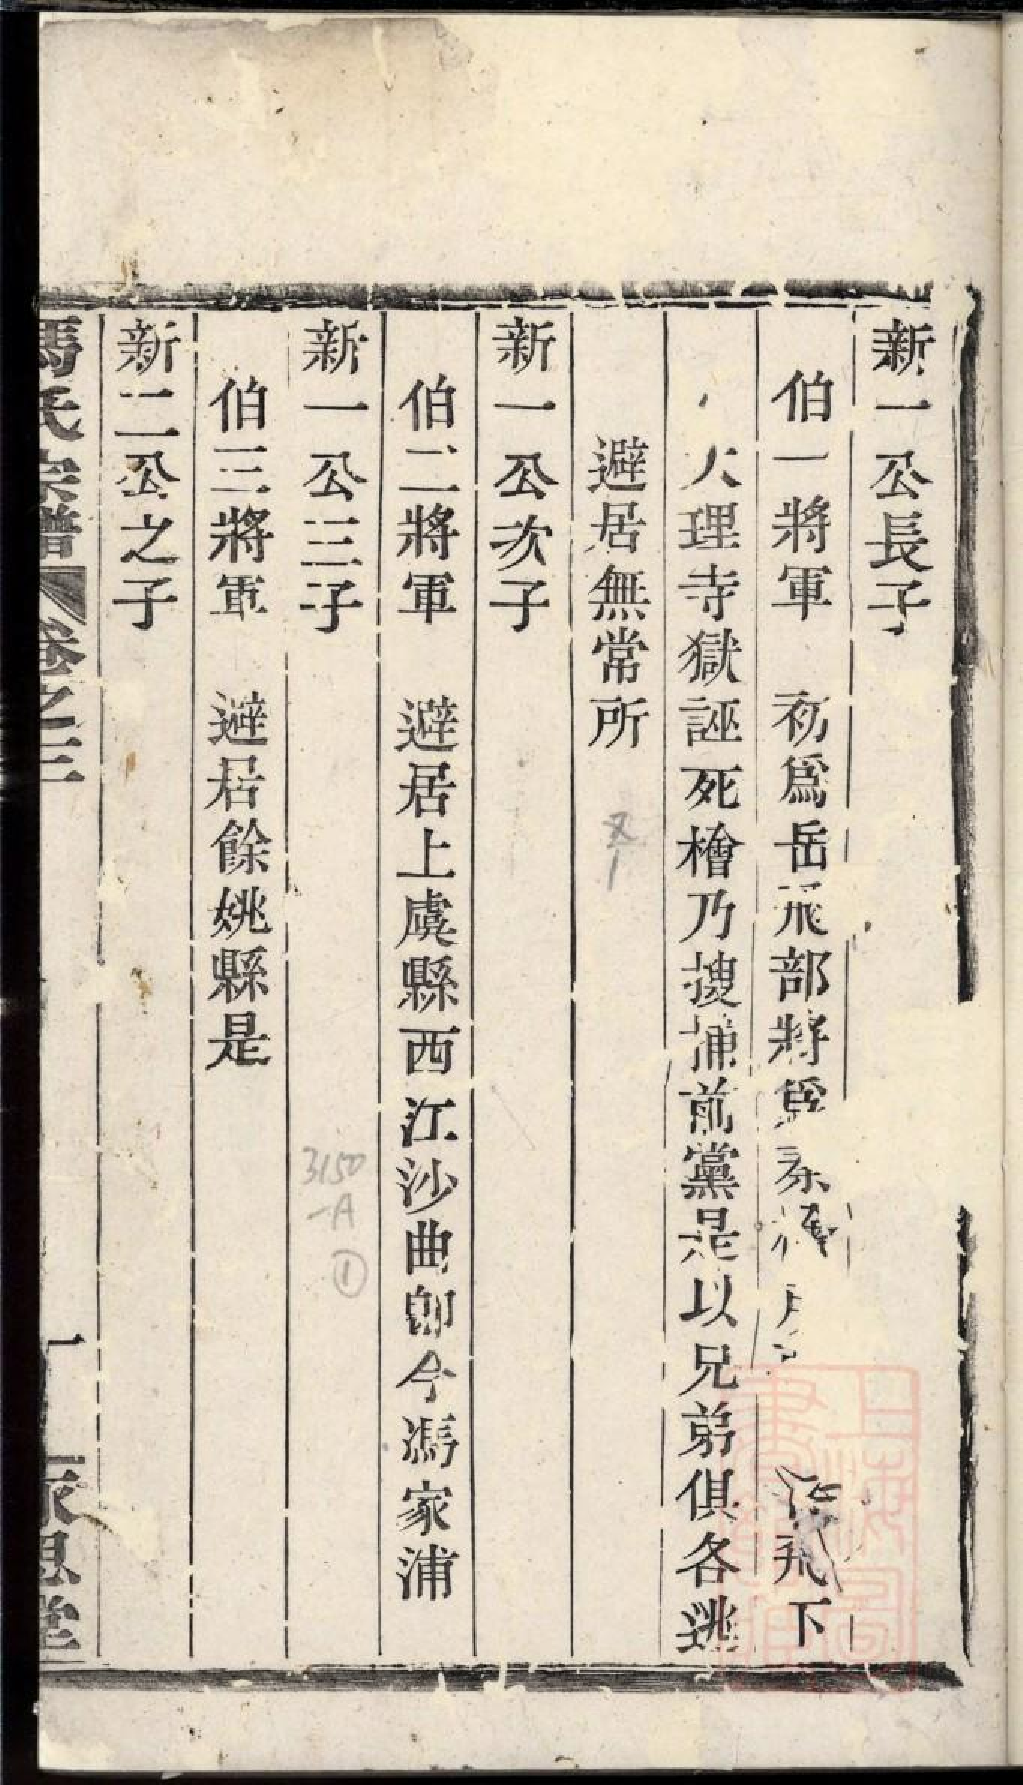 新一公長子
伯一將軍　初爲岳飛部將爲秦檜　飛下
大理寺獄誣死檜乃搜捕前黨是以兄弟俱各逃
避居無常所
新一公次子
伯二將軍　避居上虞縣西江沙曲卽今馮家浦
新一公三子
伯三將軍　避居餘姚縣是
新二公之子
馮氏宗譜　卷之三　一　永思堂
3150
-A
①